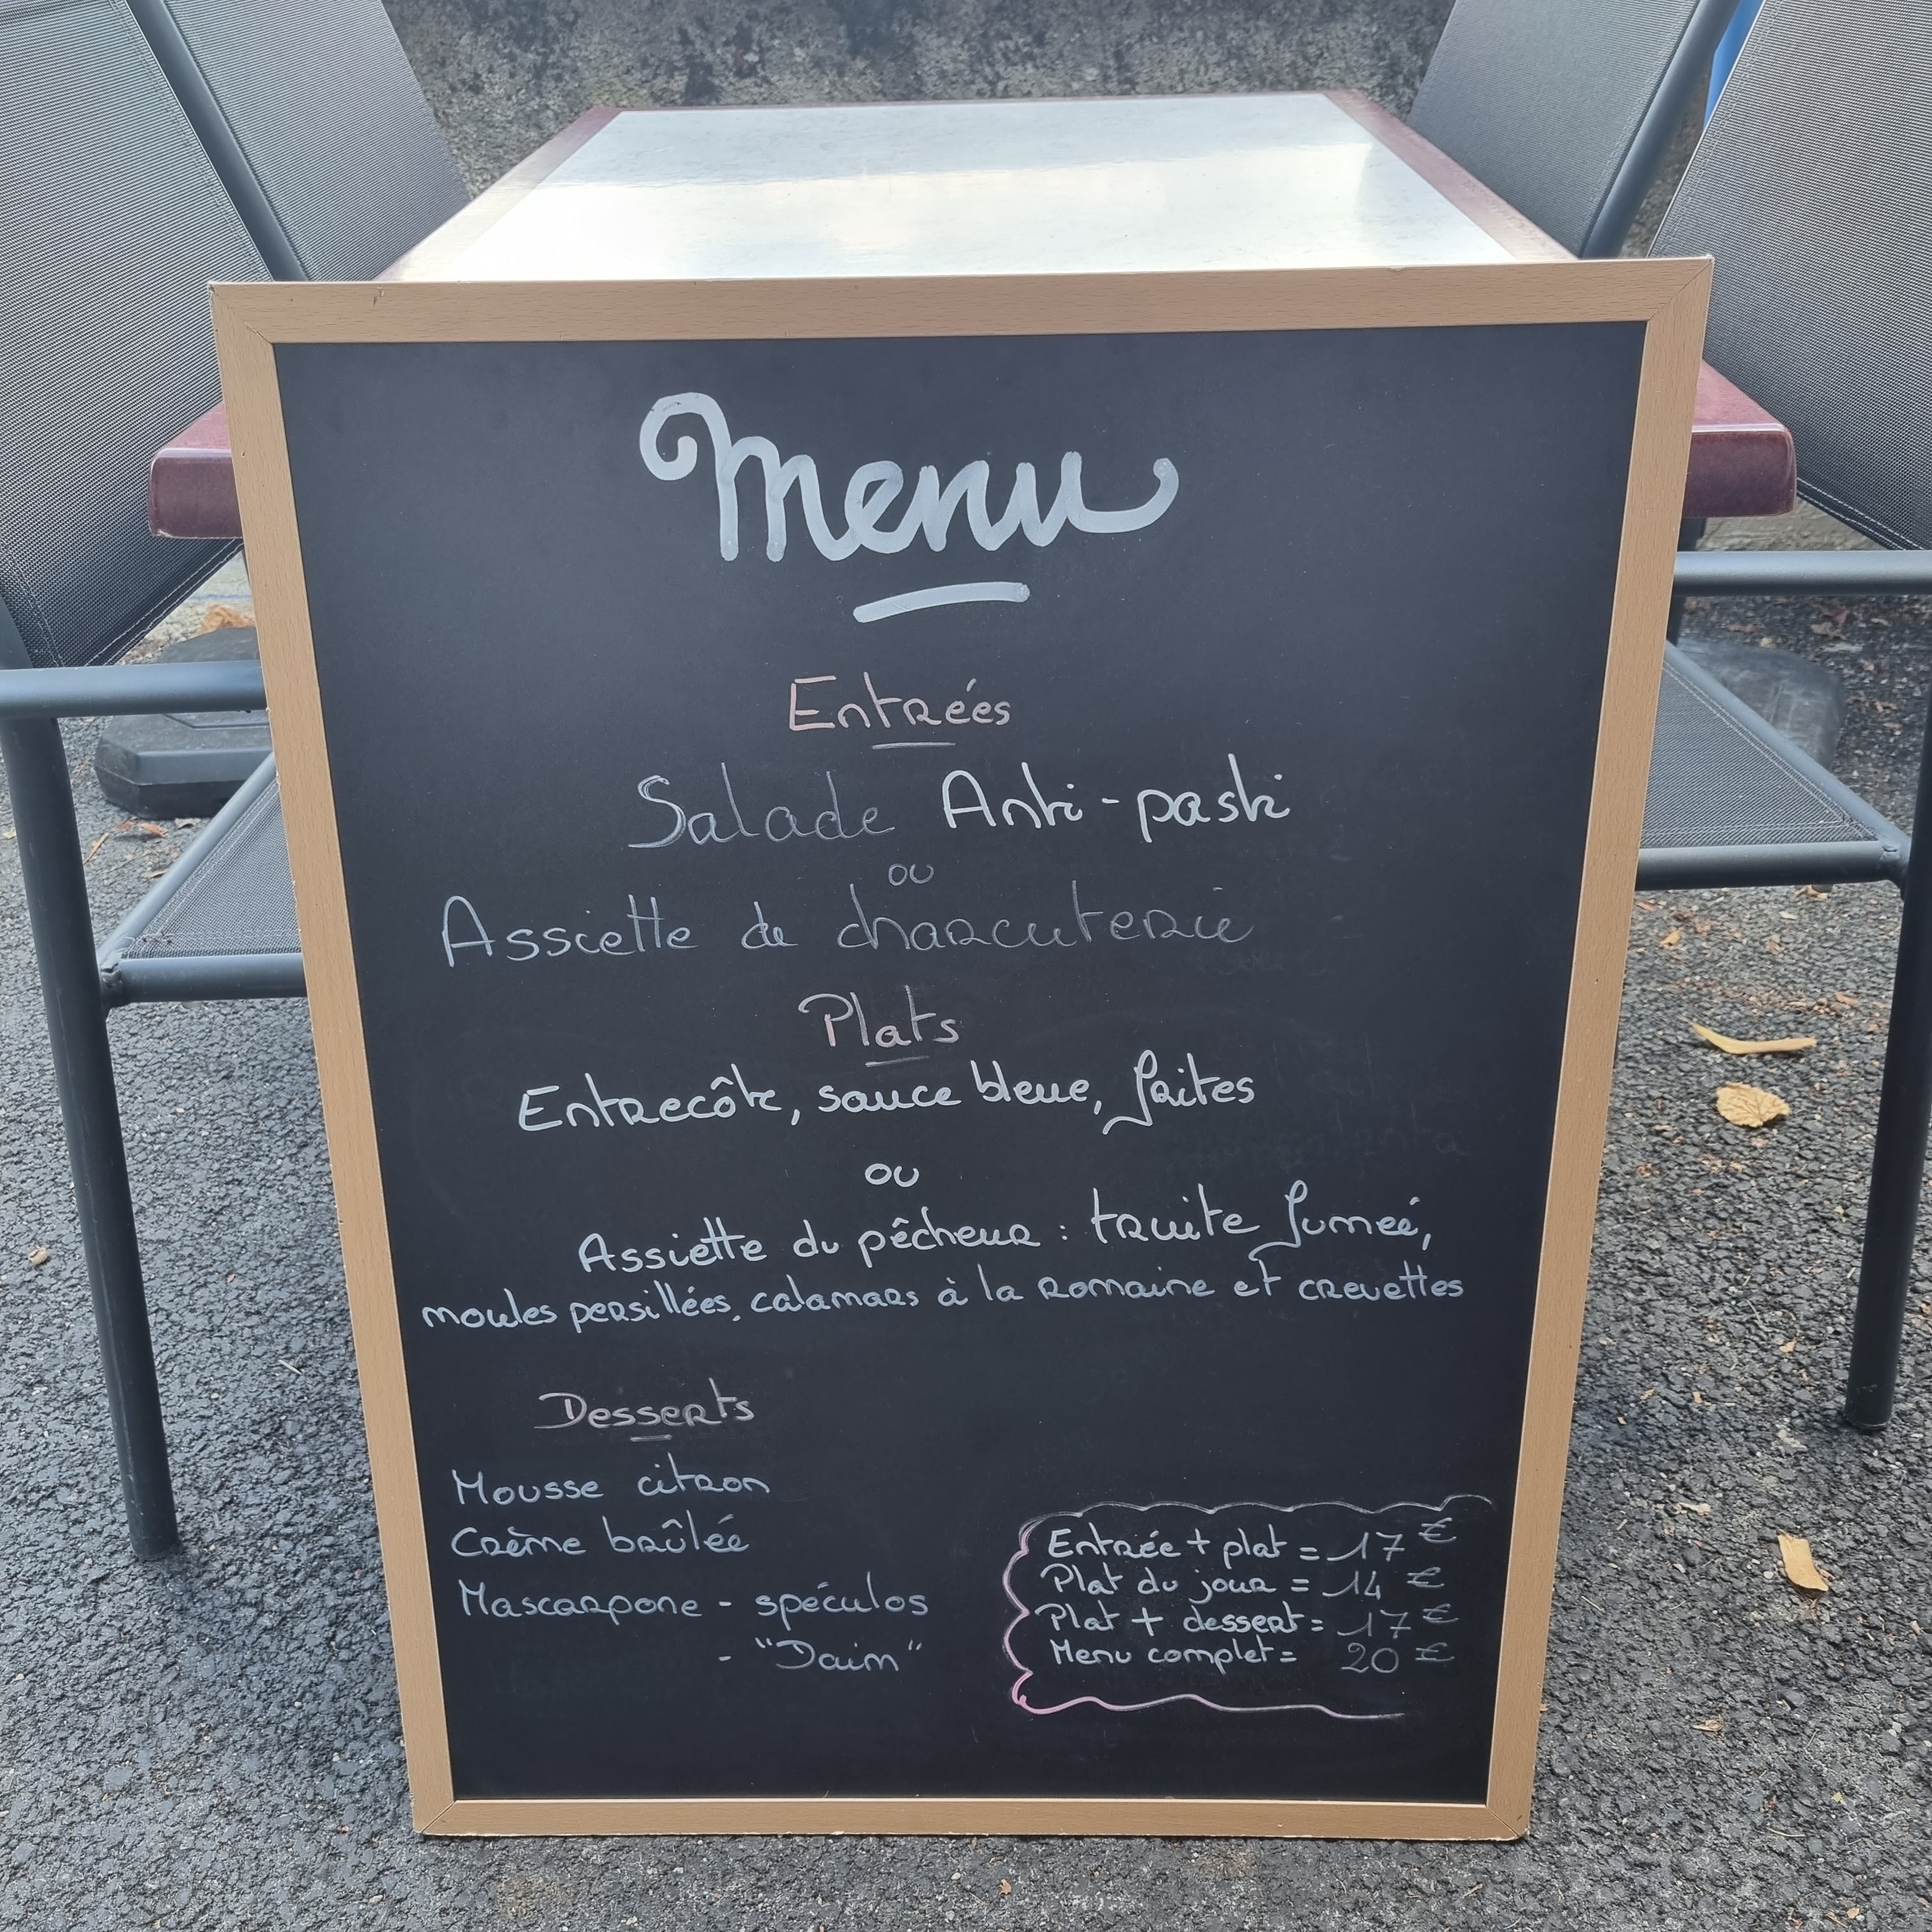 Menu
Entrées
Salade Anti-pasti
ou
Assiette de charcuterie
Plats
Entrecôte, sauce bleue, frites
ou
Assiette du pêcheur : truite fumée,
moules persillées, calamars à la romaine et crevettes
Desserts
Mousse citron
Crème brûlée
Mascarpone - spéculos
- "Daim"
Entrée + plat = 17 €
Plat du jour = 14 €
Plat + dessert = 17 €
Menu complet = 20 €